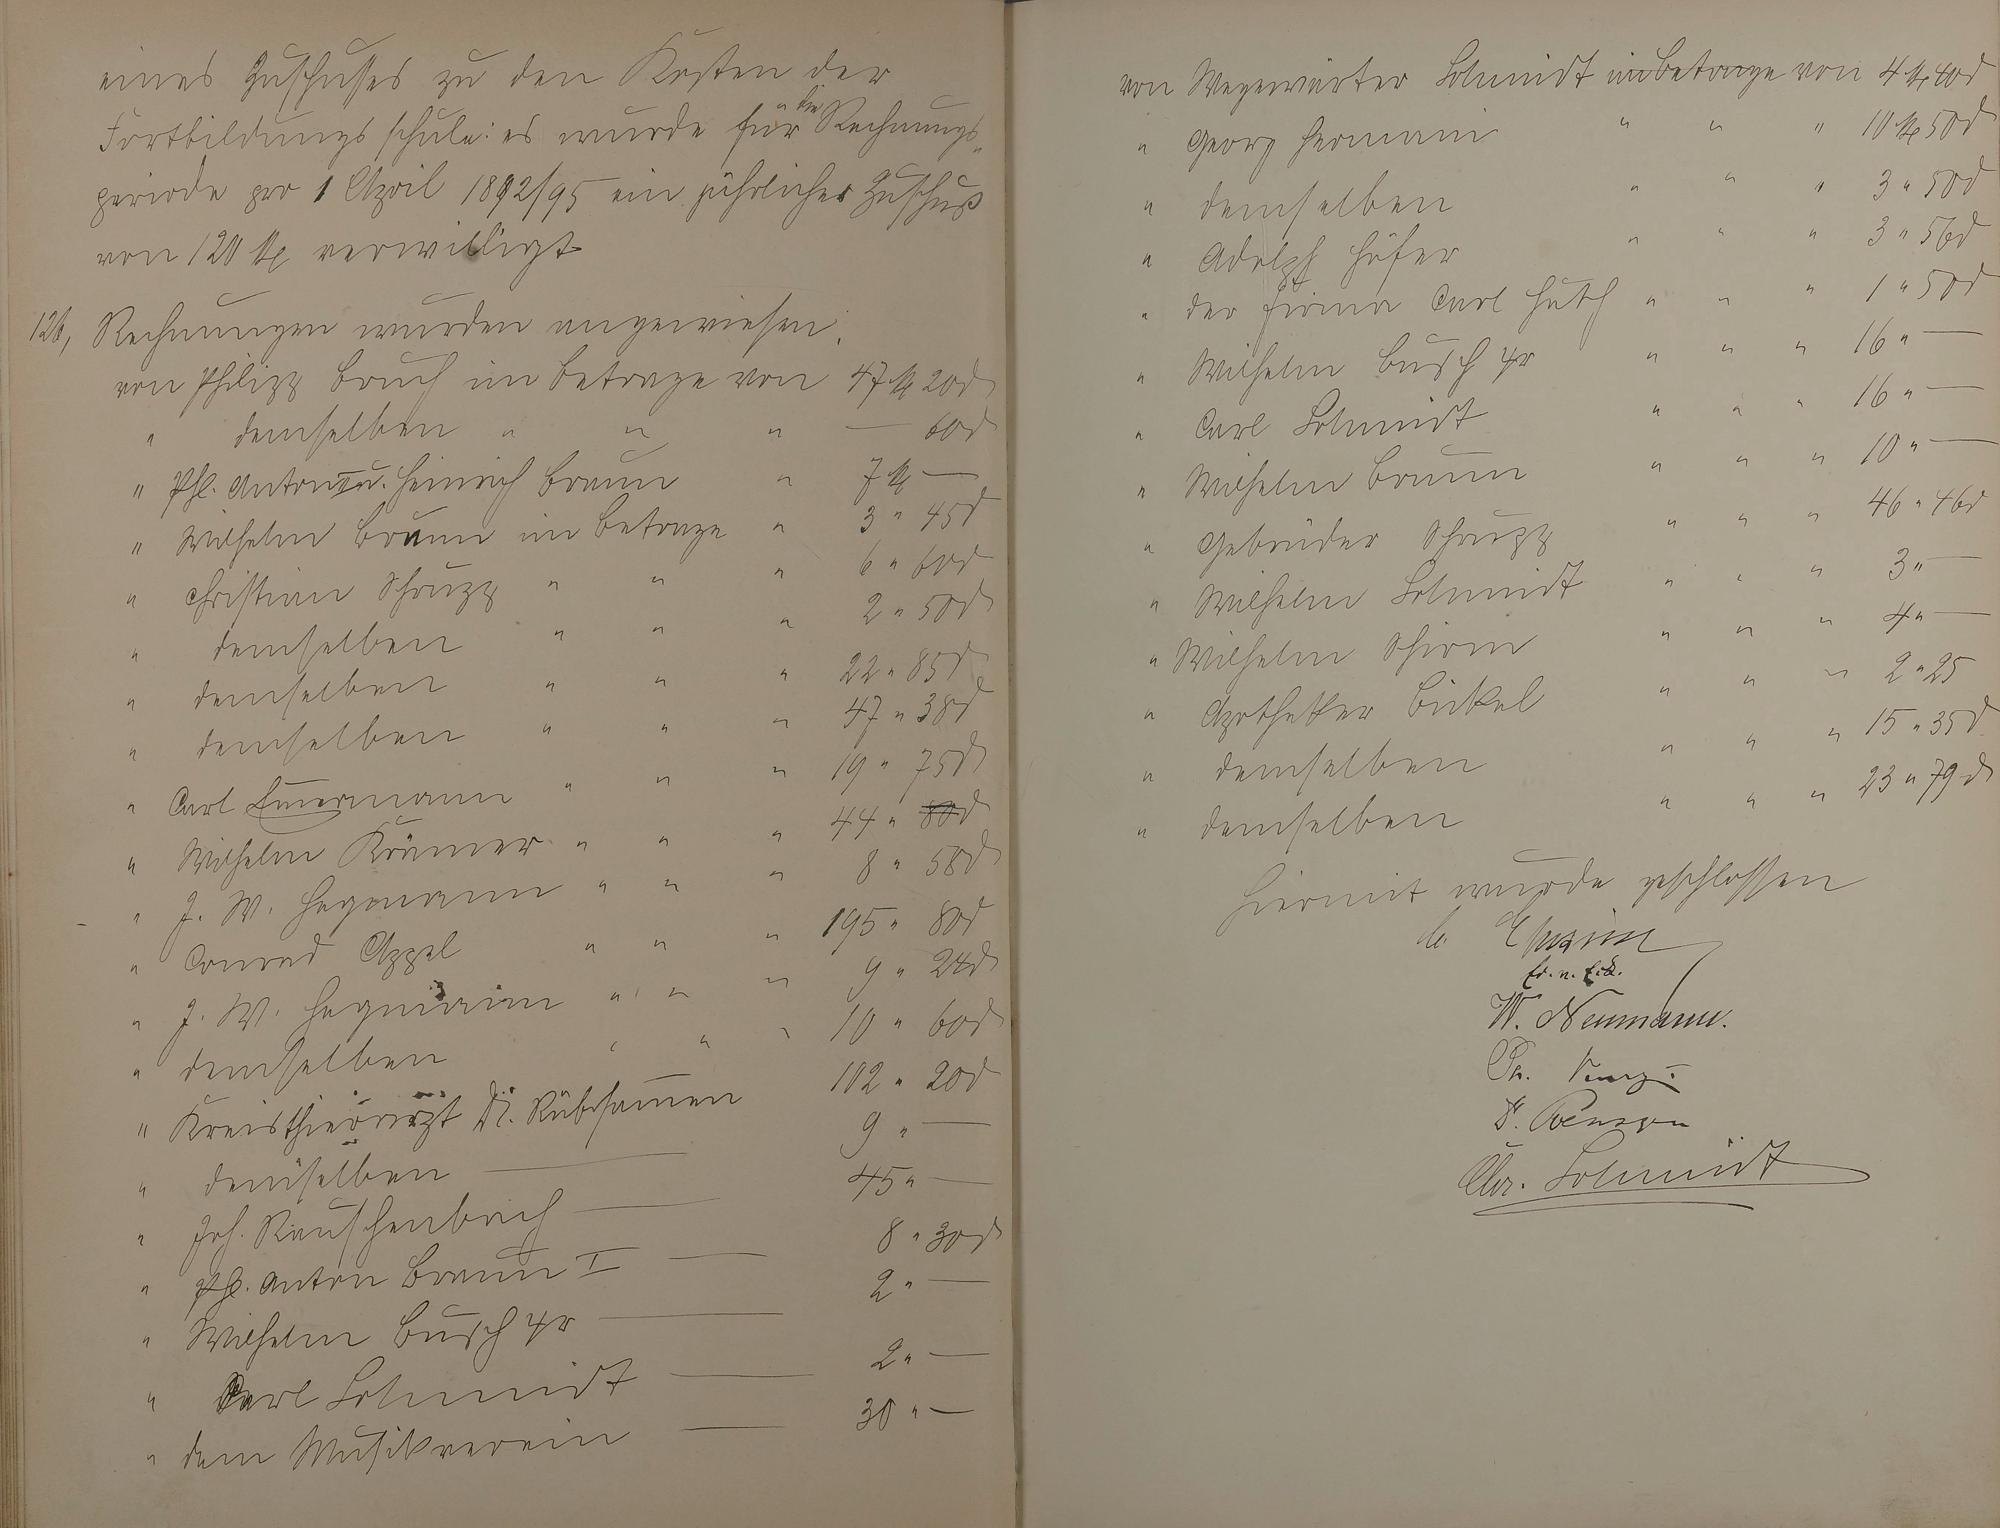 eines Zuschusses zu den Kosten der
Fortbildungsschule: es wurde für die Rechnungs-
periode pro 1 April 1892/95 ein jährlicher Zuschuß
von 120 M verwilligt
126, Rechnungen wurden angewiesen.
von Philipp Bruch im Betrage von 47 M 20 d
" demselben " " " — 60 d
" Phl. Anton II u. Heinrich Braun " 7 M —
" Wilhelm Braun im Betrage " 3 " 45 d
" Christian Schrupp " " " 6 " 60 d
" demselben " " " 2 " 50 d
" demselben " " " 22 " 85 d
" demselben " " " 47 " 38 d
" Carl Emmermann " " " 19 " 75 d
" Wilhelm Krämer " " " 44 " 80 d
" J. W. Hegmann " " " 8 " 58 d
" Conrad Appel " " " 195 " 80 d
" J. W. Hegmann " " " 9 " 24 d
" demselben " " " 10 " 60 d
" Kreisthierarzt Dr. Rübsamen 102 " 20 d
" demselben — 9 " —
" Joh. Rauschenbach — 45 " —
" Phl. Anton Braun I — 8 " 30 d
" Wilhelm Busch 4r — 2 " —
" Carl Schmidt — 2 " —
" dem Musikverein — 30 " —
von Wegewärter Schmidt im Betrage von 4 M 40 d
" Georg Hermani " " " 10 M 50 d
" demselben " " " 3 " 50 d
" Adolph Höfer " " " 3 " 56 d
" der Firma Carl Huth " " " 1 " 50 d
" Wilhelm Busch 4r " " " 16 " —
" Carl Schmidt " " " 16 " —
" Wilhelm Braun " " " 10 " —
" Gebrüder Schrupp " " " 46 " 46 d
" Wilhelm Schmidt " " " 3 " —
" Wilhelm Schirm " " " 4 " —
" Apotheker Bickel " " " 2 " 25
" demselben " " " 15 " 35 d
" demselben " " " 23 " 79 d
Hiermit wurde geschlossen
W. Neumann.
Ph.
Chr. Schmidt